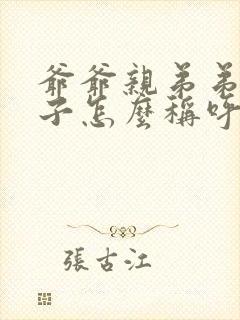 爺爺親弟弟
子怎麼稱呼
張古江